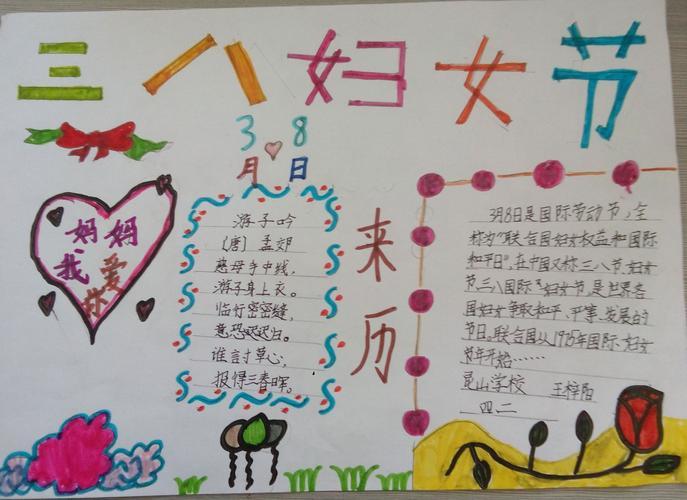 三八妇女节
3月8日
妈妈
我爱你
游子吟
(唐)孟郊
慈母手中线,
游子身上衣。
临行密密缝,
意恐迟迟归。
谁言寸草心,
报得三春晖。
来历
3月8日是国际劳动节,全
称为“联合国妇女权益和国际
和平日”,在中国又称三八节、妇女
节、三八国际妇女节,是世界各
国妇女争取和平、平等、发展的
节日。联合国从1975年国际妇女
节年开始……
昆山学校 王梓阳
四二